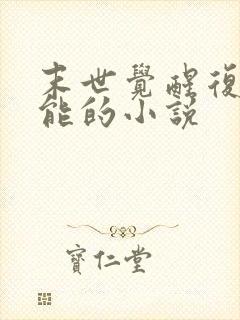 末世覺醒復
能的小說
寶仁堂